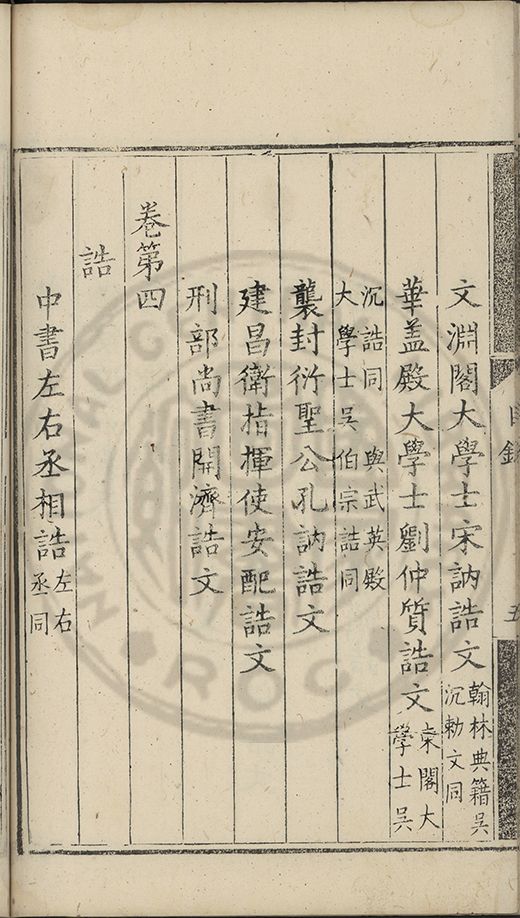 目錄
五
文淵閣大學士宋訥誥文 翰林典籍吳沉勅文同
華盖殿大學士劉仲質誥文 東閣大學士吳
沉誥同 與武英殿大學士吳伯宗誥同
襲封衍聖公孔訥誥文
建昌衛指揮使安配誥文
刑部尚書開濟誥文
卷第四
誥
中書左右丞相誥 左右丞同